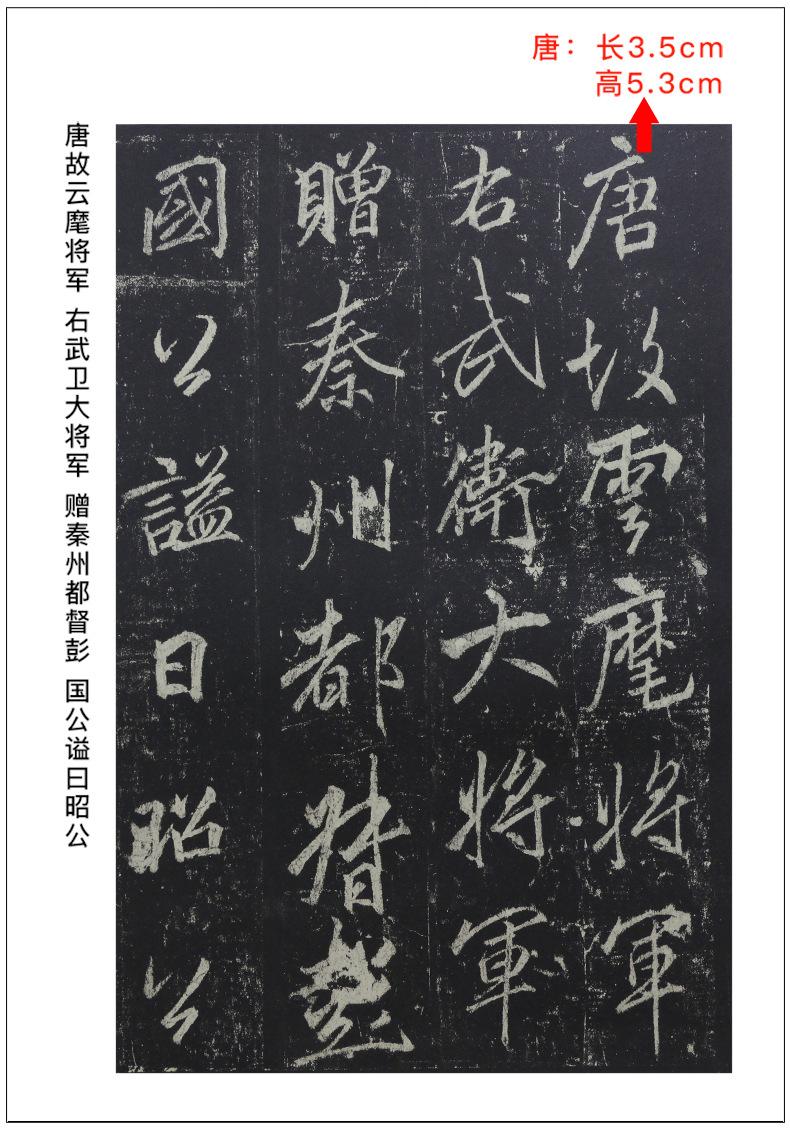 唐：长3.5cm
高5.3cm
唐故云麾将军 右武卫大将军 赠秦州都督彭 国公谥曰昭公
唐故雲麾將軍
右武衛大將軍
贈秦州都督彭
國公謚曰昭公